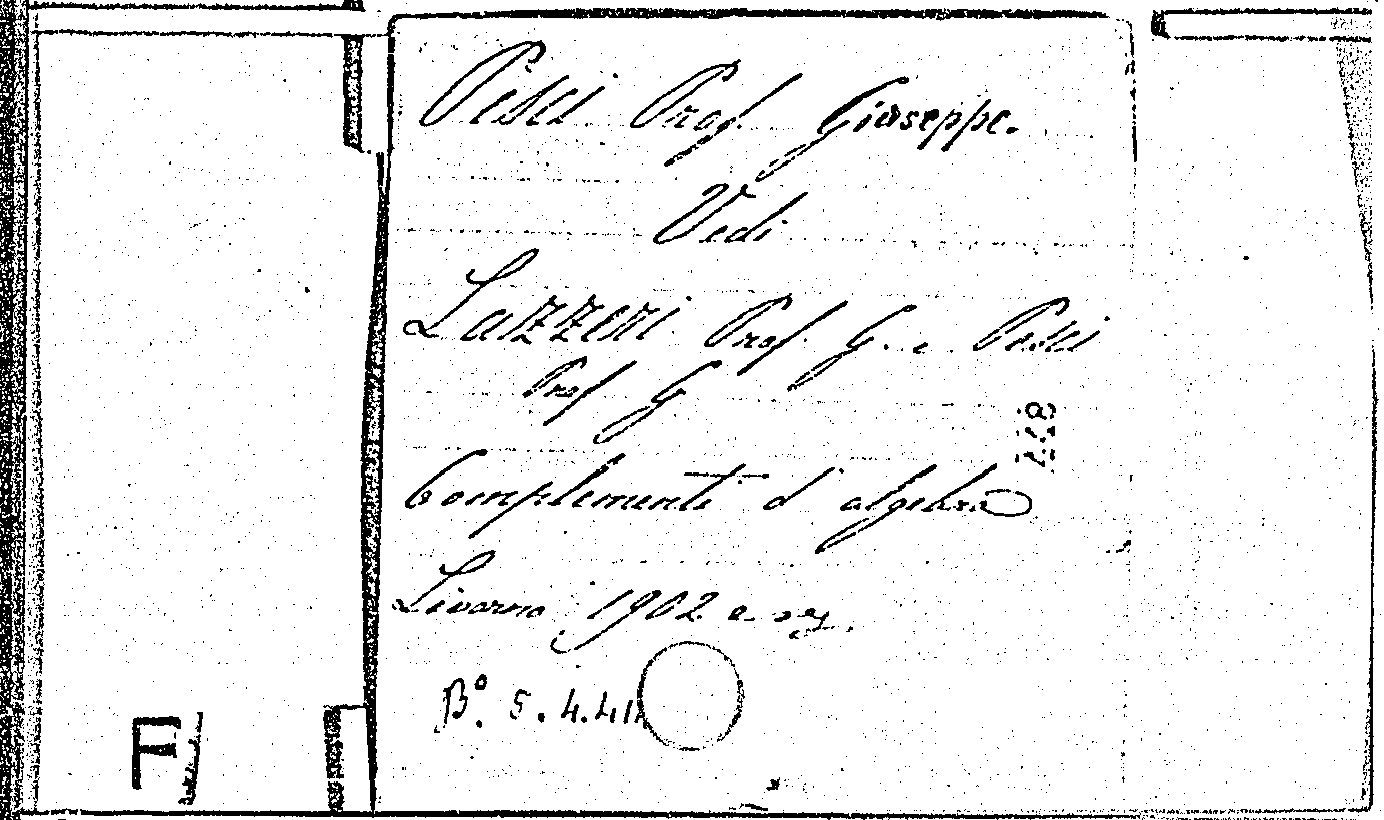 Pesci Prof. Giuseppe.
Vedi
Lazzeri Prof. G. e Pesci
Prof G
Complementi d'algebra
Livorno 1902 e seg.
B.º 5.4.411
F